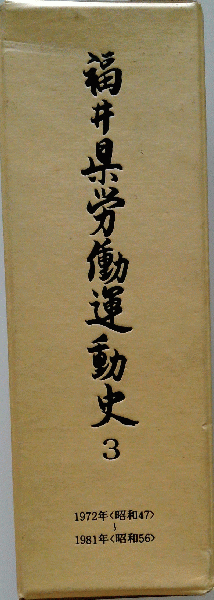 福井県労働運動史
3
1972年<昭和47>
~
1981年<昭和56>